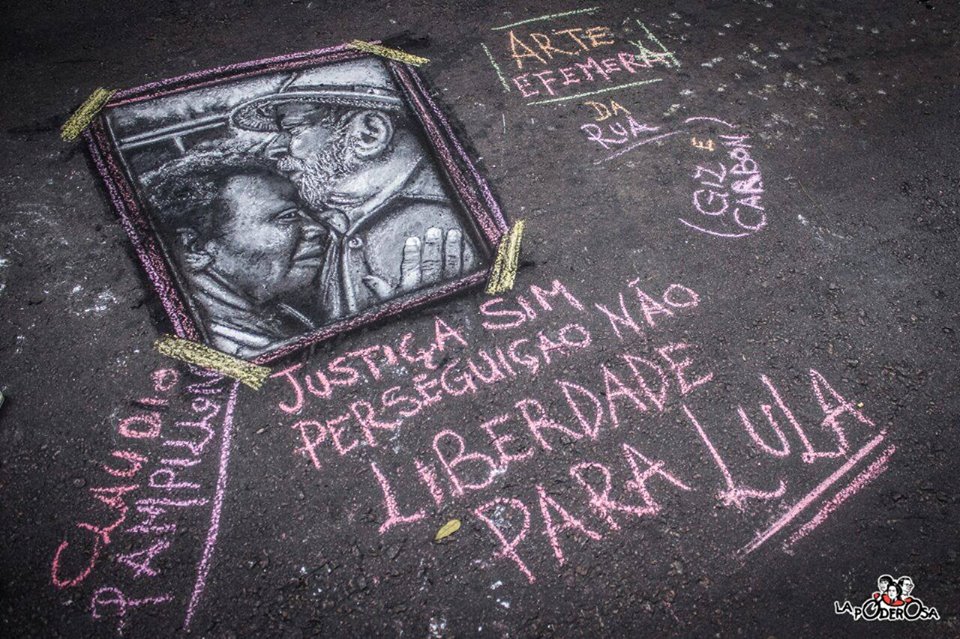 ARTE
EFEMERA
DA
RUA
GIZ E
CARBON
JUSTIÇA SIM
PERSEGUIÇÃO NÃO
LIBERDADE
PARA LULA
CLAUDIO
PAMPILLON
LA PODEROSA